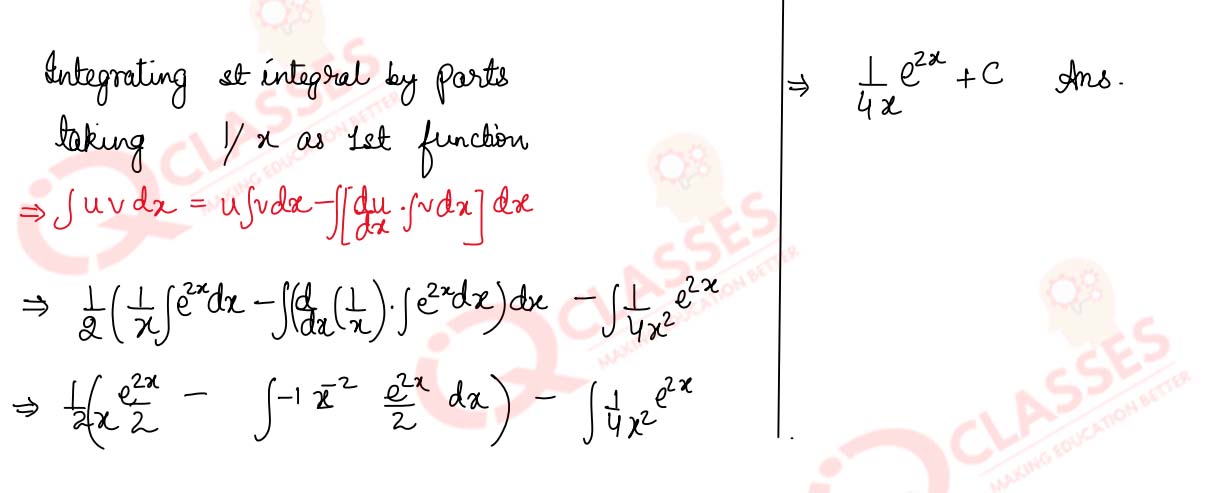 Integrating st integral by parts
taking 1/x as 1st function
⇒ ∫u v dx = u∫vdx - ∫[du/dx · ∫vdx] dx
⇒ 1/2 (1/x ∫e^2x dx - ∫(d/dx (1/x) · ∫e^2x dx) dx - ∫ 1/4x² e^2x
⇒ 1/2 (e^2x/x 2 - ∫ -1 x^-2 e^2x/2 dx) - ∫ 1/4x² e^2x
⇒ 1/4x e^2x + C Ans.
CLASSES
MAKING EDUCATION BETTER
CLASSES
MAKING EDUCATION BETTER
CLASSES
MAKING EDUCATION BETTER